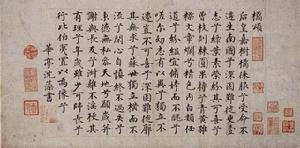 橘頌
后皇嘉樹橘徠服兮受命不
遷生南國兮深固難徙更壹
志兮綠葉素榮紛其可喜兮
曾枝剡棘圓果摶兮青黃雜
糅文章爛兮精色內白類任
道兮紛縕宜脩姱而不醜兮
嗟爾幼志有以異兮獨立不
遷豈不可喜兮深固難徙廓
其無求兮蘇世獨立橫而不
流兮閉心自慎終不過失兮
秉德無私參天地兮願歲并
謝與長友兮淑離不淫梗其
有理兮年歲雖少可師長兮
行比伯夷置以為像兮
華亭沈藻書